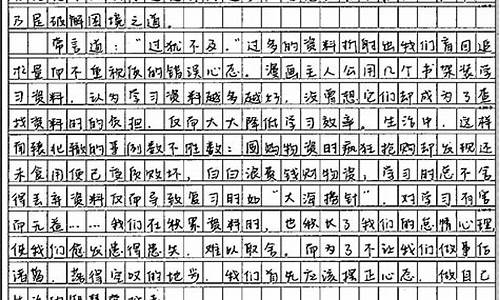 乃是破解困境之道。
常言道："过犹不及。"过多的资料折射出我们盲目追
求量而不重视质的错误心态。漫画主人公用几个书架装学
习资料,认为学习资料越多越好,没曾想它们却成为了查
找资料时的负担,反而大大降低学习效率。生活中,这样
南辕北辙的事例数不胜数:囤购物资时疯狂抢购却发现还
未食用便已变质败坏,白白浪费钱财物资;学习时总不舍
得丢弃资料反而导致复习时如"大海捞针",对学习有害
而无益……我们在积累资料的时,也软化了我们的怠惰心理,
使我们愈发患得患失,难以取舍。而为了不让我们做事
诸葛,我们首先应该摆正心态,做自己